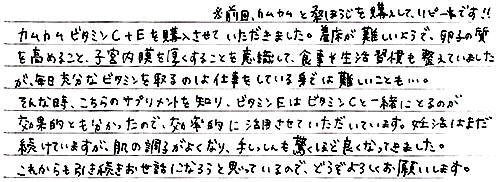 ※前回、カムカムと葵ほうじを購入して、リピートです!!
カムカムビタミンC+Eを購入させていただきました。着床が難しいようで、卵子の質
を高めること、子宮内膜を厚くすることを意識して、食事や生活習慣も整えていました
が、毎日充分なビタミンを取るのは仕事をしている身では難しいことも…。
そんな時、こちらのサプリメントを知り、ビタミンEはビタミンCと一緒にとるのが
効果的とも分かったので、効率的に活用させていただいています。妊活はまだ
続けていますが、肌の調子がよくなり、手しっしんも驚くほど良くなってきました。
これからも引き続きお世話になろうと思っているので、どうぞよろしくお願いします。